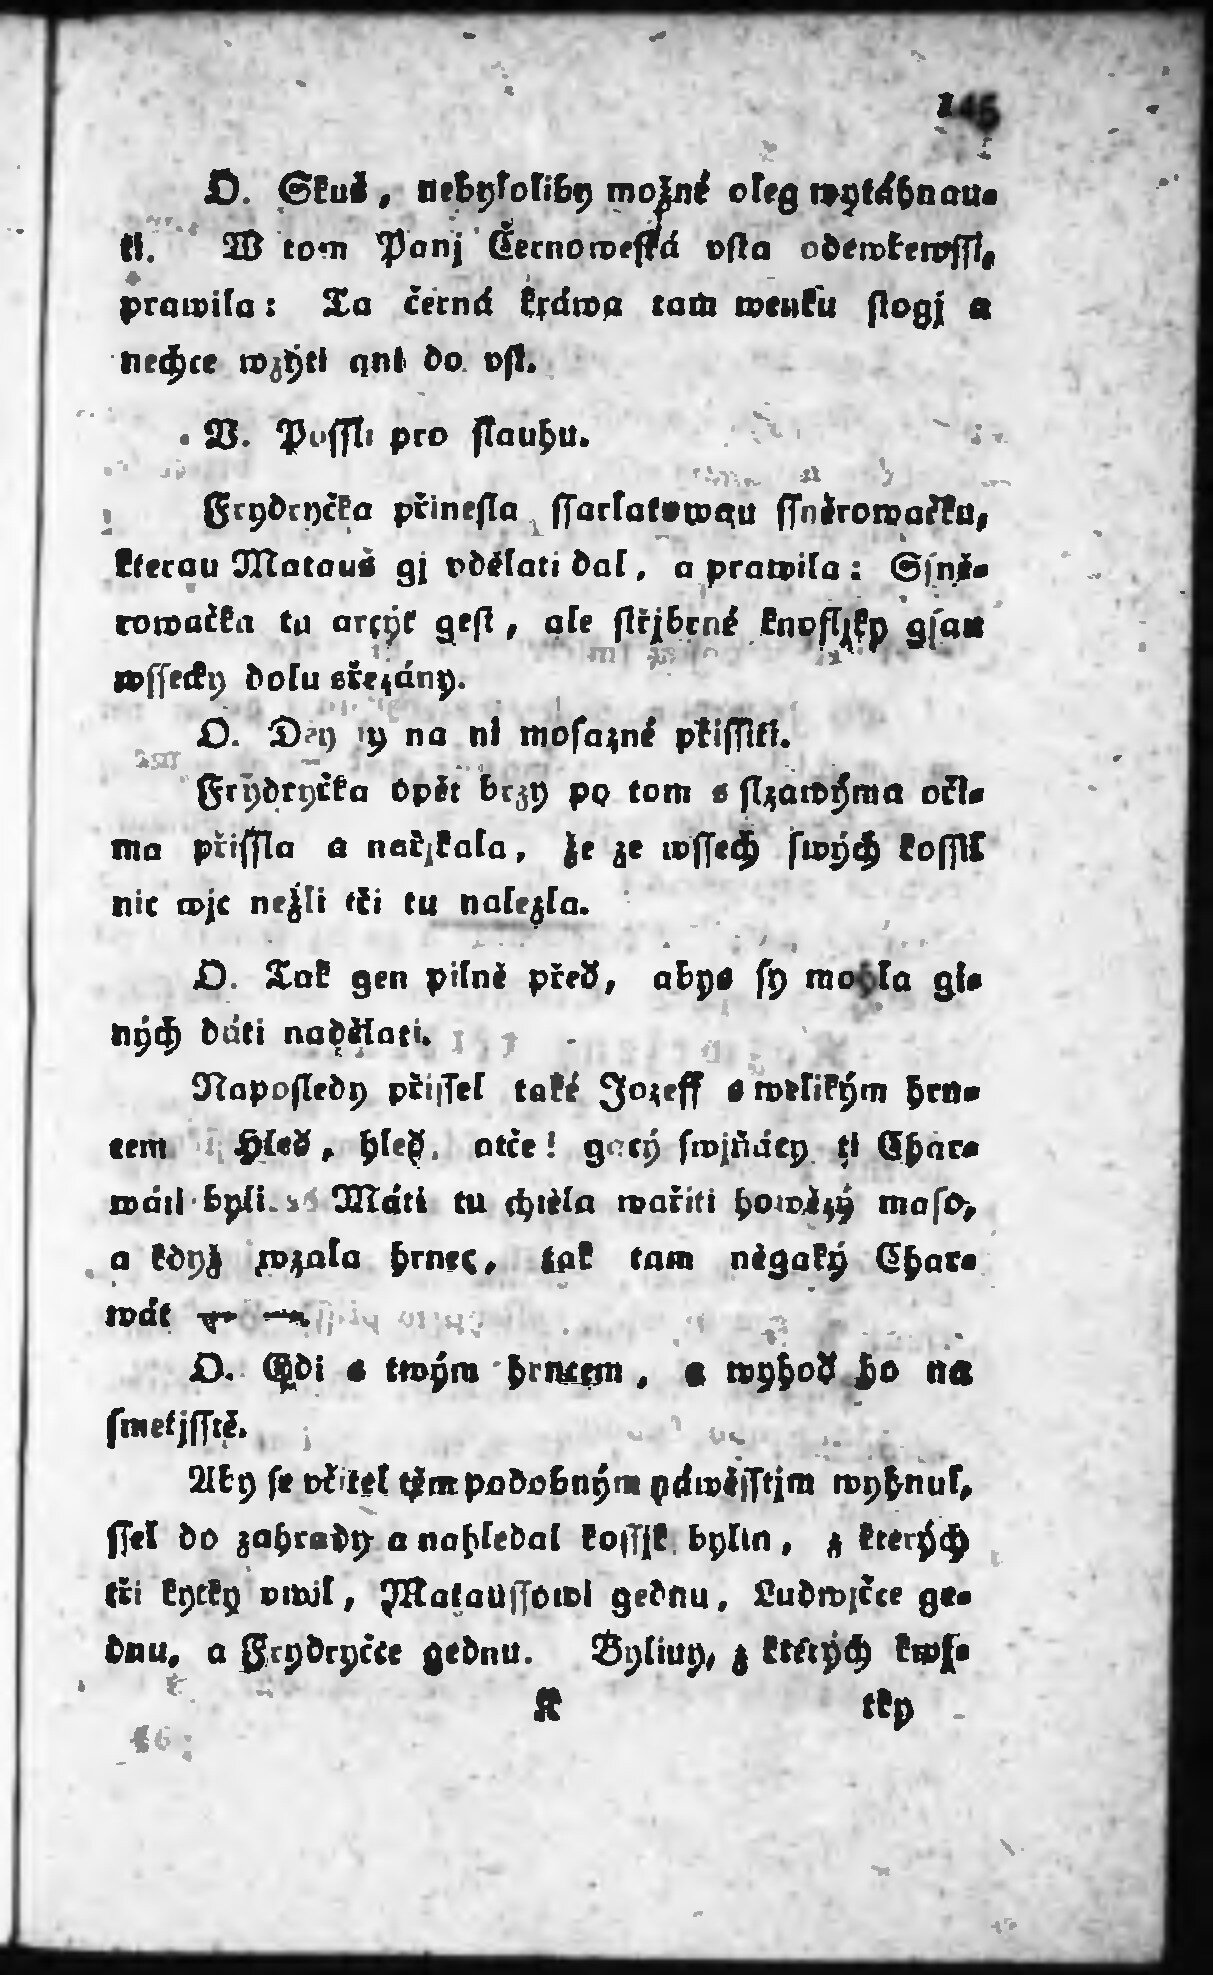 145
O. Skus, nebyloliby možné oleg wytáhnau-
ti. W tom Panj Černoweská vsta odewřewssi,
prawila: Ta černá kráwa tam wenku stogj a
nechce wzýti ani do vst.
V. Possli pro slauhu.
Frydryčka přinesla ssarlatowau ssněrowačku,
kterau Matauš gj vdělati dal, a prawila: Ssně-
rowačka tu arcyť gest, ale střjbrné knofljky gsau
wssecky dolu sřezány.
O. Dey ty na ni mosazné přissiti.
Frydryčka opět brzy po tom s slzawýma oči-
ma přissla a nařjkala, že ze wssech swých kossil
nic wjc nežli tři tu nalezla.
O. Tak gen pilně před, abys sy mohla gi-
ných dáti nadělati.
Naposledy přissel také Jozeff s welikým hrn-
cem Hleď, hleď, otče! gacý swjňácy ti Char-
wáti byli. Máti tu chtěla wařiti howězý maso,
a když wzala hrnec, tak tam něgaký Char-
wát — —
O. Gdi s twým hrncem, a wyhoď ho na
smetjsstě.
Aby se včitel těm podobným náwěsstjm wyhnul,
ssel do zahrady a nahledal kossjk bylin, z kterých
tři kytky vwil, Mataussowi gednu, Ludwjčce ge-
dnu, a Frydryčce gednu. Byliny, z kterých kwj-
K tky